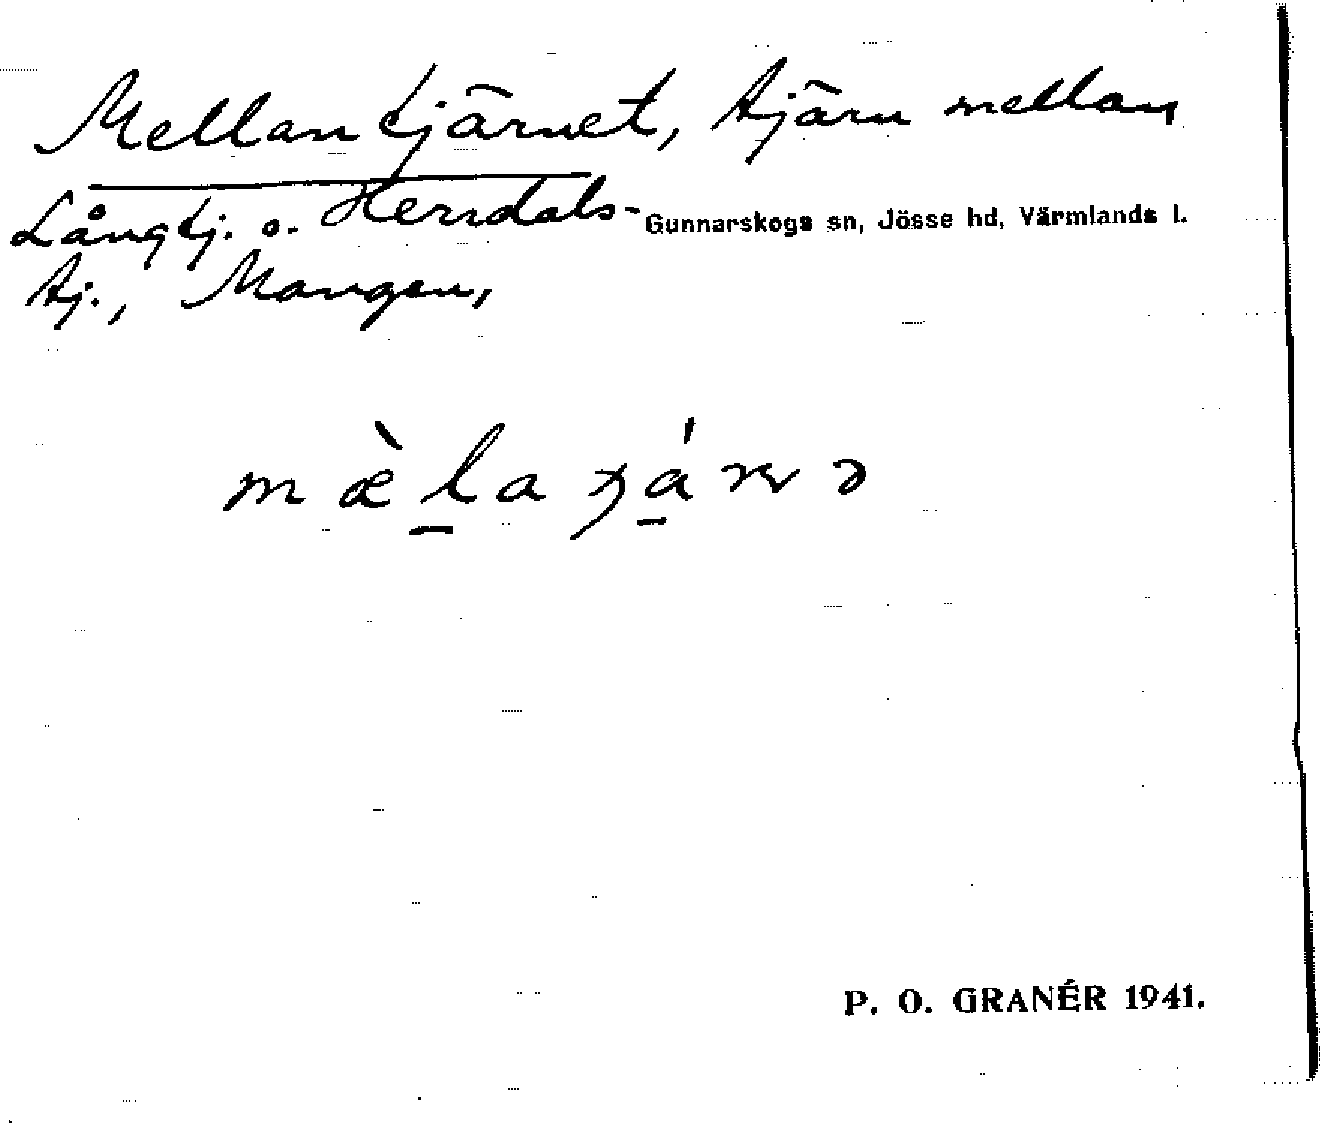 Mellantjärnet, tjärn mellan
Långtj. o. Herrdals-
Gunnarskogs sn, Jösse hd, Värmlands l.
tj., Mangen,
P. O. GRANÉR 1941.